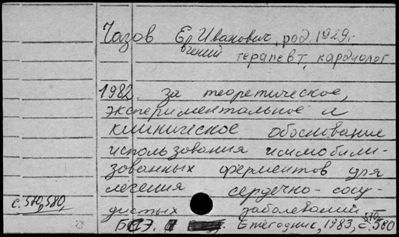 Чазов Ев Иванович, род. 1929г
гений терапевт, кардиолог
1982 за теоретическое,
экспериментальное и
клиническое обоснование
использования иммобили-
зованных ферментов для
лечения сердечно-сосу-
с. 580, дистых заболеваний
БСЭ. Ежегодник, 1983, с. 580